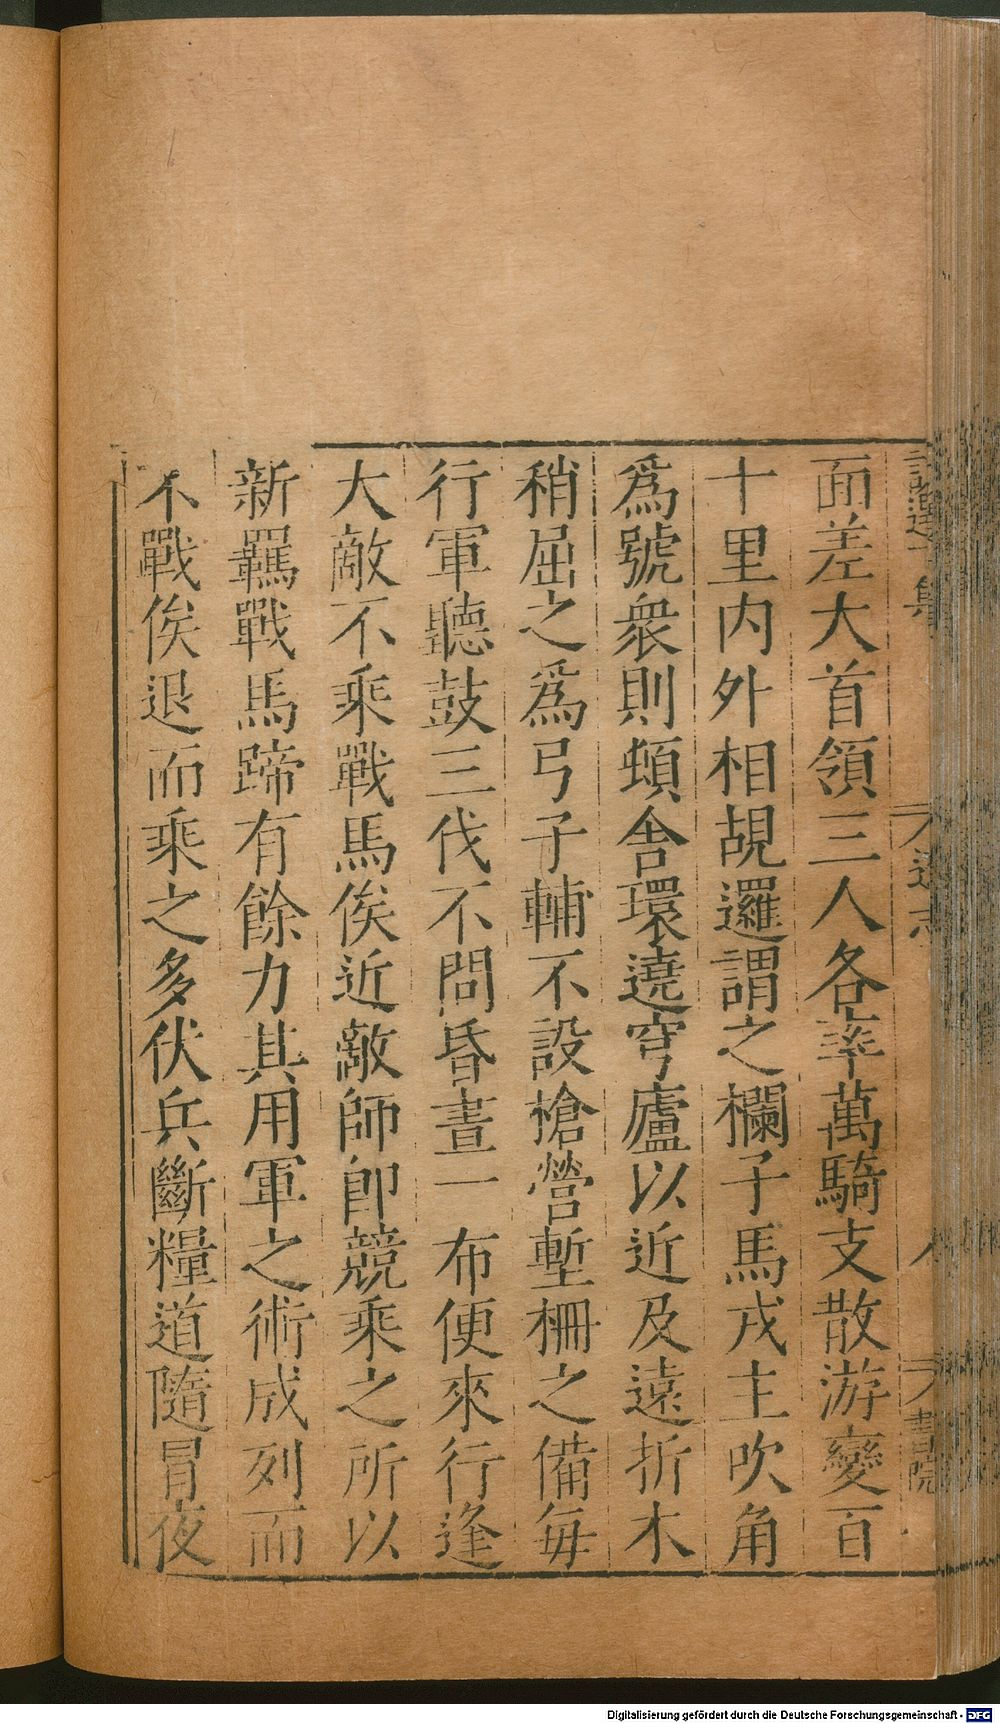 面差大首領三人各率萬騎支散游變百
十里内外相覘邏謂之欄子馬戎主吹角
爲號衆則頓舍環遶穹廬以近及遠折木
稍屈之爲弓子輔不設槍營塹柵之備每
行軍聽鼓三伐不問昏晝一布便來行逢
大敵不乘戰馬俟近敵師即競乘之所以
新羈戰馬蹄有餘力其用軍之術成列而
不戰俟退而乘之多伏兵斷糧道隨冒夜
遼志
書院
Digitalisierung gefördert durch die Deutsche Forschungsgemeinschaft - DFG